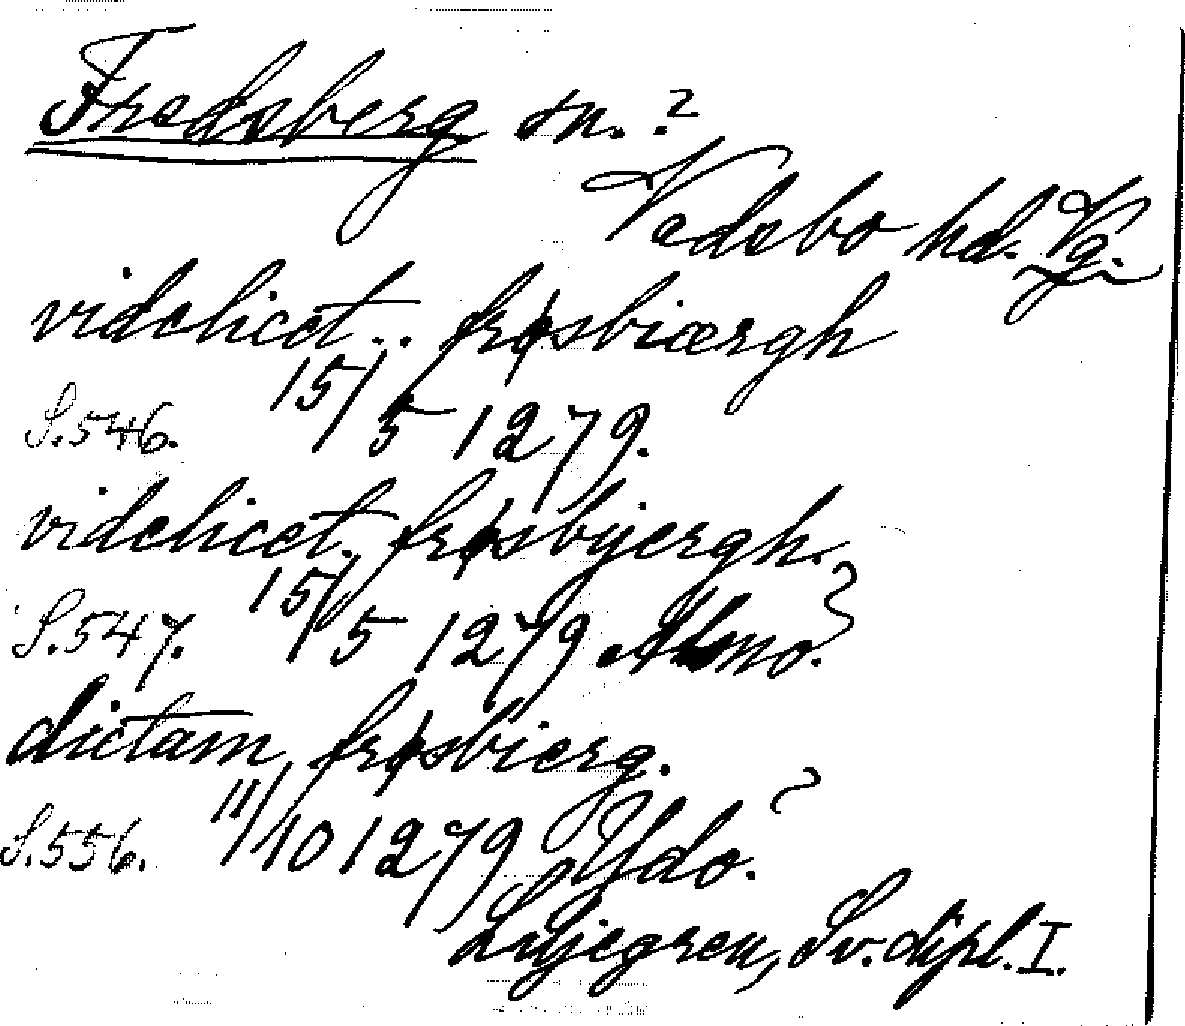 Fredsberg sn. ?
Vadsbo hd. Vg.
videlicet .. frøsbiærgh
S. 546. 15/5 1279.
videlicet. frøsbyergh.
S. 547. 15/5 1279
dictam frøsbierg.
S. 556. 11/10 1279 ?
Liljegren, Sv. dipl. I.